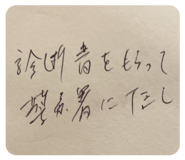 診断書をもらって
警察署にだし